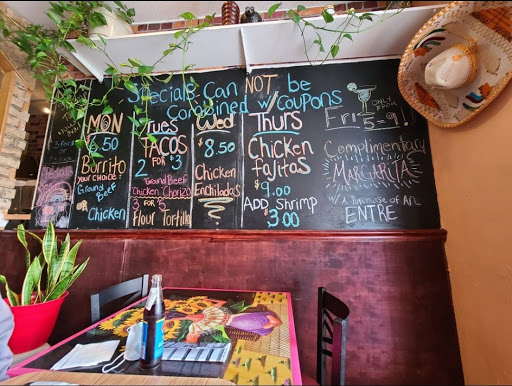 Specials Can NOT be
Combined w/ Coupons
MON
6.50
Burrito
your CHOICE:
Ground
Beef
or Chicken
Tues
TACOS
2 FOR $3
Ground Beef
Chicken Chorizo
3 FOR $5
Flour Tortilla
Wed
$8.50
Chicken
Enchiladas
Thurs
Chicken
fajitas
$9.00
ADD shrimp
$3.00
Fri
ONLY
FROM
5-9!
Complimentary
MARGARITA
w/ A Purchase of AN
ENTRE